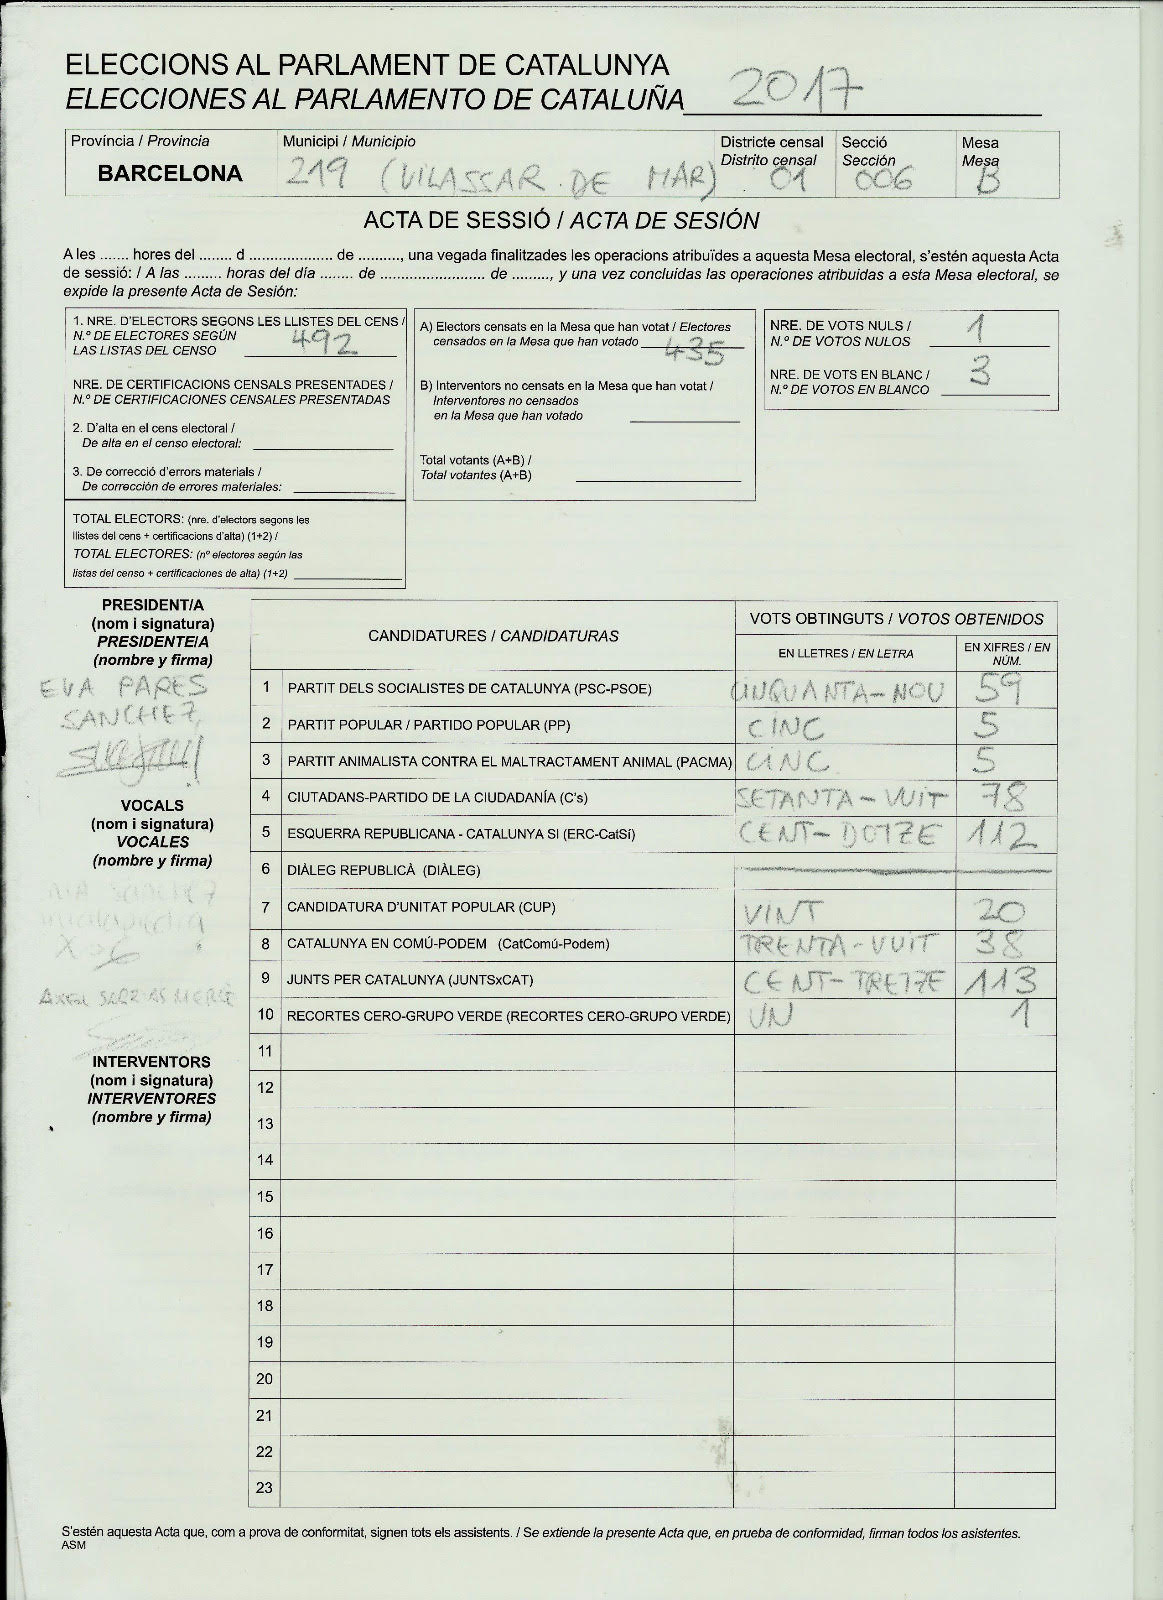 ELECCIONS AL PARLAMENT DE CATALUNYA
ELECCIONES AL PARLAMENTO DE CATALUÑA 2017
Província / Provincia
BARCELONA
Municipi / Municipio
219 (VILASSAR DE MAR)
Districte censal
Distrito censal
01
Secció
Sección
006
Mesa
Mesa
B
ACTA DE SESSIÓ / ACTA DE SESIÓN
A les ....... hores del ........ d ..................... de .........., una vegada finalitzades les operacions atribuïdes a aquesta Mesa electoral, s'estén aquesta Acta
de sessió: / A las ......... horas del día ........ de .......................... de ........., y una vez concluidas las operaciones atribuidas a esta Mesa electoral, se
expide la presente Acta de Sesión:
1. NRE. D'ELECTORS SEGONS LES LLISTES DEL CENS /
N.º DE ELECTORES SEGÚN
LAS LISTAS DEL CENSO 492
NRE. DE CERTIFICACIONS CENSALS PRESENTADES /
N.º DE CERTIFICACIONES CENSALES PRESENTADAS
2. D'alta en el cens electoral /
De alta en el censo electoral:
3. De correcció d'errors materials /
De corrección de errores materiales:
TOTAL ELECTORS: (nre. d'electors segons les
llistes del cens + certificacions d'alta) (1+2) /
TOTAL ELECTORES: (nº electores según las
listas del censo + certificaciones de alta) (1+2)
A) Electors censats en la Mesa que han votat / Electores
censados en la Mesa que han votado 435
B) Interventors no censats en la Mesa que han votat /
Interventores no censados
en la Mesa que han votado
Total votants (A+B) /
Total votantes (A+B)
NRE. DE VOTS NULS /
N.º DE VOTOS NULOS 1
NRE. DE VOTS EN BLANC /
N.º DE VOTOS EN BLANCO 3
PRESIDENT/A
(nom i signatura)
PRESIDENTE/A
(nombre y firma)
EVA PARES
SANCHEZ
VOCALS
(nom i signatura)
VOCALES
(nombre y firma)
INTERVENTORS
(nom i signatura)
INTERVENTORES
(nombre y firma)
CANDIDATURES / CANDIDATURAS
VOTS OBTINGUTS / VOTOS OBTENIDOS
EN LLETRES / EN LETRA
EN XIFRES / EN
NÚM.
1 PARTIT DELS SOCIALISTES DE CATALUNYA (PSC-PSOE) CINQUANTA-NOU 59
2 PARTIT POPULAR / PARTIDO POPULAR (PP) CINC 5
3 PARTIT ANIMALISTA CONTRA EL MALTRACTAMENT ANIMAL (PACMA) CINC 5
4 CIUTADANS-PARTIDO DE LA CIUDADANÍA (C's) SETANTA-VUIT 78
5 ESQUERRA REPUBLICANA - CATALUNYA SI (ERC-CatSí) CENT-DOTZE 112
6 DIÀLEG REPUBLICÀ (DIÀLEG)
7 CANDIDATURA D'UNITAT POPULAR (CUP) VINT 20
8 CATALUNYA EN COMÚ-PODEM (CatComú-Podem) TRENTA-VUIT 38
9 JUNTS PER CATALUNYA (JUNTSxCAT) CENT-TRETZE 113
10 RECORTES CERO-GRUPO VERDE (RECORTES CERO-GRUPO VERDE) UN 1
11
12
13
14
15
16
17
18
19
20
21
22
23
S'estén aquesta Acta que, com a prova de conformitat, signen tots els assistents. / Se extiende la presente Acta que, en prueba de conformidad, firman todos los asistentes.
ASM